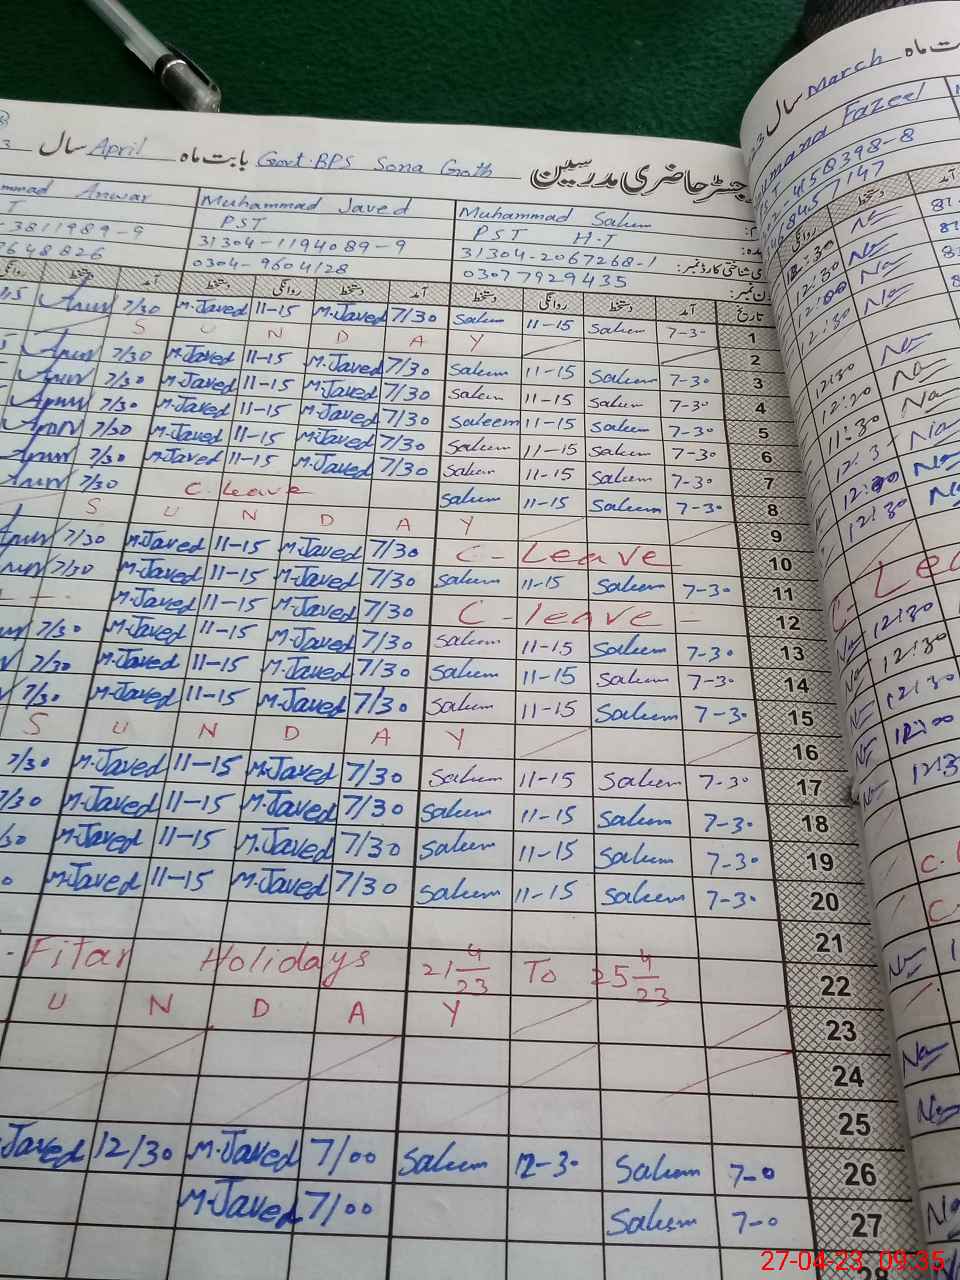 رجسٹر حاضری مدرسین Govt. BPS Sona Goth بابت ماہ April سال
Muhammad Saleem Muhammad Javed Anwar
PST H.T PST T
31304-2067268-1 31304-1194089-9 3811989-9
03077929435 0304-9604128 9648826
تاریخ آمد دستخط روانگی دستخط آمد دستخط روانگی دستخط آمد دستخط روانگی
1 7-30 Saleem 11-15 Saleem 7/30 M.Javed 11-15 M.Javed 7/30 Anwr
2 S U N D A Y
3 7-30 Saleem 11-15 Saleem 7/30 M.Javed 11-15 M.Javed 7/30 Anwr
4 7-30 Saleem 11-15 Saleem 7/30 M.Javed 11-15 M.Javed 7/30 Anwr
5 7-30 Saleem 11-15 Saleem 7/30 M.Javed 11-15 M.Javed 7/30 Anwr
6 7-30 Saleem 11-15 Saleem 7/30 M.Javed 11-15 M.Javed 7/30 Anwr
7 7-30 Saleem 11-15 Saleem 7/30 M.Javed 11-15 M.Javed 7/30 Anwr
8 7-30 Saleem 11-15 Saleem C. leave 7/30 Anwr
9 S U N D A Y
10 C - Leave 7/30 M.Javed 11-15 M.Javed 7/30
11 7-30 Saleem 11-15 Saleem 7/30 M.Javed 11-15 M.Javed 7/30
12 C - leave - 7/30 M.Javed 11-15 M.Javed
13 7-30 Saleem 11-15 Saleem 7/30 M.Javed 11-15 M.Javed 7/30
14 7-30 Saleem 11-15 Saleem 7/30 M.Javed 11-15 M.Javed 7/30
15 7-30 Saleem 11-15 Saleem 7/30 M.Javed 11-15 M.Javed 7/30
16 S U N D A Y
17 7-30 Saleem 11-15 Saleem 7/30 M.Javed 11-15 M.Javed 7/30
18 7-30 Saleem 11-15 Saleem 7/30 M.Javed 11-15 M.Javed 7/30
19 7-30 Saleem 11-15 Saleem 7/30 M.Javed 11-15 M.Javed
20 7-30 Saleem 11-15 Saleem 7/30 M.Javed 11-15 M.Javed
21
22 Fitar Holidays 21 4/23 To 25 4/23
23 U N D A Y
24
25
26 7-0 Saleem 12-30 Saleem 7/00 M.Javed 12/30 Javed
27 7-0 Saleem 7/00 M.Javed
28
ماہ March سال
Fazeel
450398-8
68457147
روانگی دستخط
12:30
12:30
12:30
12:30
12:20
11:30
12:30
12:30
C- Lea
12:30
12:30
12:30
12:00
27-04-23 09:35